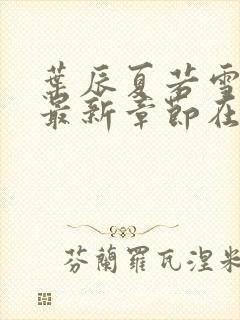 葉辰夏若雪
最新章節在
芬蘭羅瓦涅米